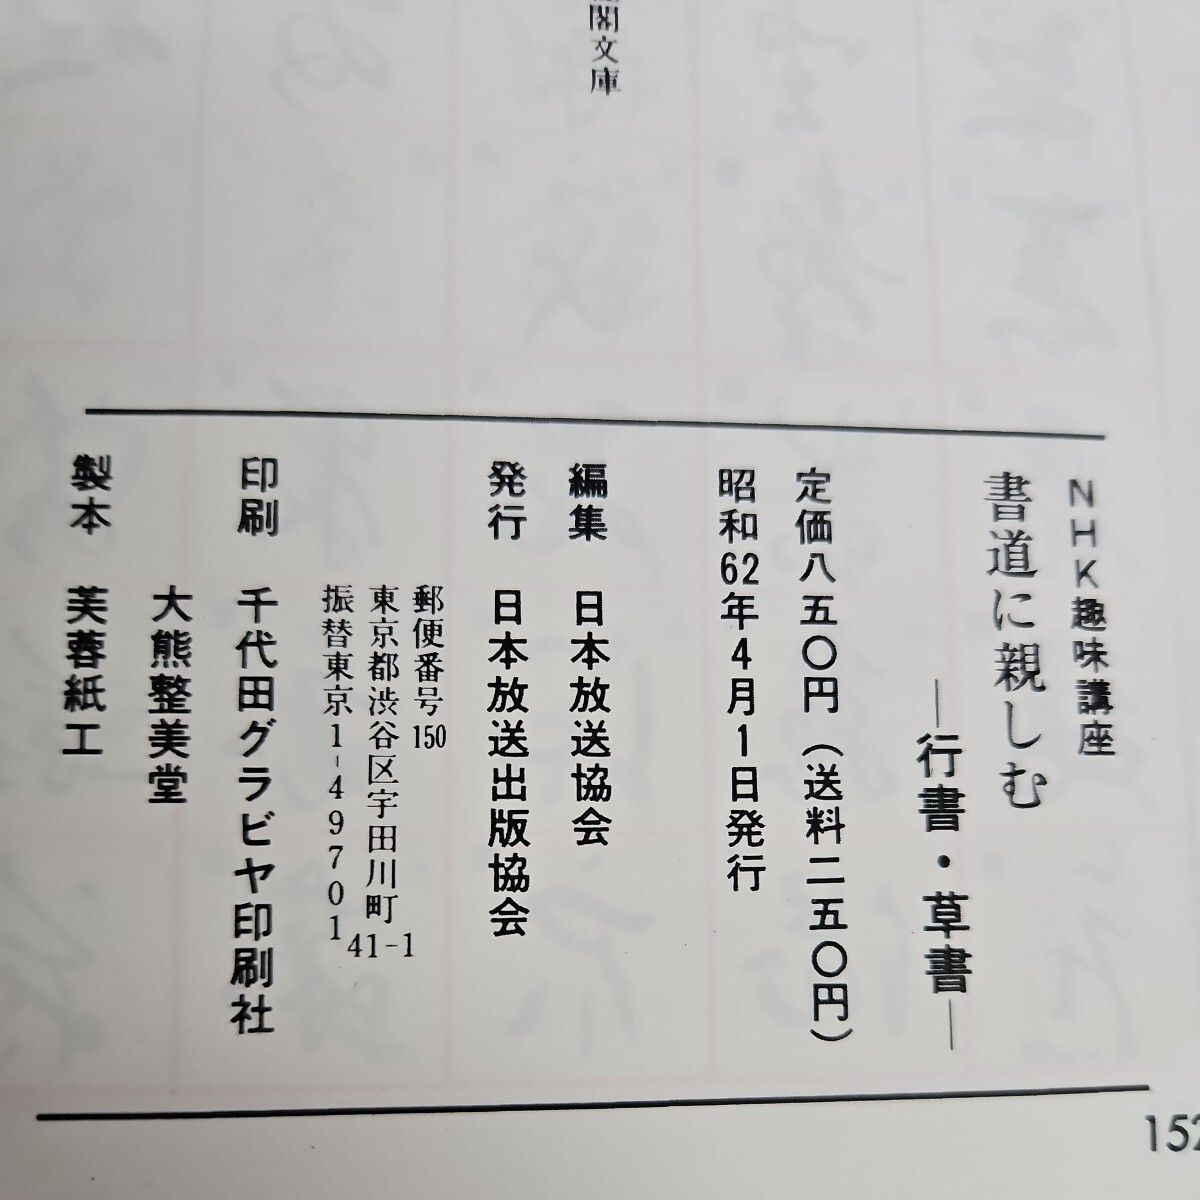 閣文庫
NHK趣味講座
書道に親しむ
―行書・草書―
定価八五〇円（送料二五〇円）
昭和62年4月1日発行
編集 日本放送協会
発行 日本放送出版協会
郵便番号150
東京都渋谷区宇田川町41-1
振替東京1-49701
印刷 千代田グラビヤ印刷社
大熊整美堂
製本 芙蓉紙工
152